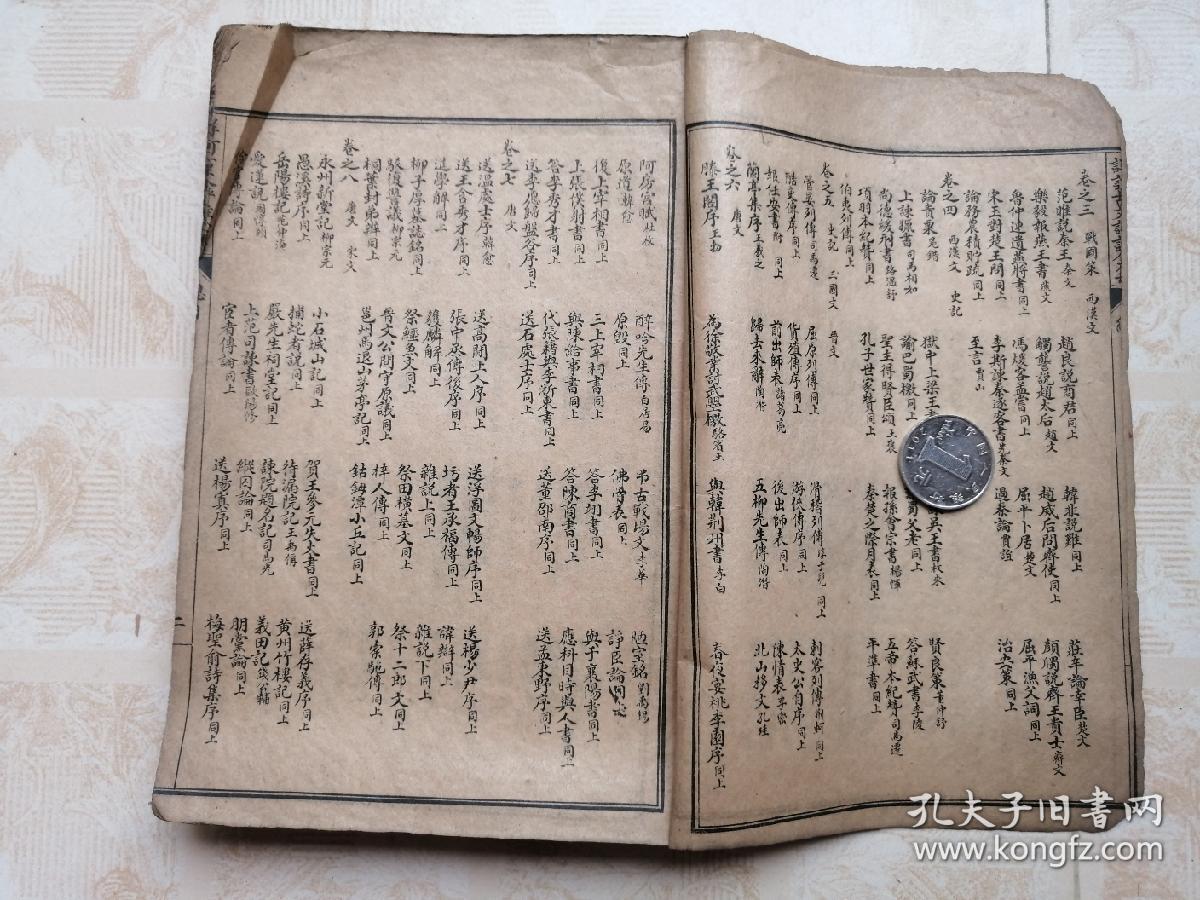 卷之三 戰國策 西漢文
范雎說秦王秦文 趙良說商君同上 韓非說難同上 莊辛論幸臣楚文
樂毅報燕王書燕文 觸讋說趙太后趙文 趙威后問齊使同上 顏斶說齊王貴士齊文
魯仲連遺燕將書同上 馮煖客孟嘗同上 屈平卜居楚文 屈平漁父詞同上
宋玉對楚王問同上 李斯諫秦逐客書秦文 過秦論賈誼 治安策同上
論務農積貯疏同上 至言賈山
卷之四 西漢文 史記
論貴粟晁錯 獄中上梁王書 吳王書枚乘 賢良策董仲舒
上諫獵書司馬相如 諭巴蜀檄同上 父老同上 答蘇武書李陵
尚德緩刑書路溫舒 聖主得賢臣頌王褒 報孫會宗書楊惲 五帝本紀贊司馬遷
項羽本紀贊同上 孔子世家贊同上 秦楚之際月表同上 平準書同上
伯夷列傳同上
卷之五 史記 三國文 晉文
管晏列傳司馬遷 屈原列傳同上 滑稽列傳同上 刺客列傳同上
酷吏傳序同上 貨殖傳序同上 游俠傳序同上 太史公自序同上
報任安書 前出師表諸葛亮 後出師表同上 陳情表李密
蘭亭集序王羲之 歸去來辭陶潛 五柳先生傳陶潛 北山移文孔珪
卷之六 唐文
滕王閣序王勃 為徐敬業討武曌檄駱賓王 與韓荊州書李白 春夜宴桃李園序同上
阿房宮賦杜牧 醉吟先生傳白居易 弔古戰場文李華 陋室銘劉禹錫
原道韓愈 原毀同上 佛骨表同上 諍臣論同上
後上宰相書同上 三上宰相書同上 答李翊書同上 與于襄陽書同上
上張僕射書同上 與陳給事書同上 答陳商書同上 應科目時與人書同上
答李秀才書同上 代張籍與李浙東書同上 送董邵南序同上 送孟東野序同上
送李愿歸盤谷序同上 送石處士序同上
卷之七 唐文
送溫處士序韓愈 送高閑上人序同上 送浮圖文暢師序同上 送楊少尹序同上
送王含秀才序同上 張中丞傳後序同上 圬者王承福傳同上 諱辯同上
進學解同上 獲麟解同上 雜說上同上 雜說下同上
柳子厚墓誌銘同上 祭鱷魚文同上 祭田橫墓文同上 祭十二郎文同上
駁復讐議柳宗元 晉文公問守原議同上 梓人傳同上 郭橐駝傳同上
桐葉封弟辯同上 邕州馬退山茅亭記同上 鈷鉧潭小丘記同上
卷之八 唐文 宋文
永州新堂記柳宗元 小石城山記同上 賀王參元失火書同上 送薛存義序同上
愚溪詩序同上 捕蛇者說同上 待漏院記王禹偁 黃州竹樓記同上
岳陽樓記范仲淹 嚴先生祠堂記同上 諫院題名記司馬光 義田記錢公輔
愛蓮說周濂溪 上范司諫書歐陽修 縱囚論同上 朋黨論同上
論同上 宦者傳論同上 送楊寘序同上 梅聖俞詩集序同上
二
孔夫子旧書网
www.kongfz.com